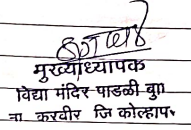 मुख्याध्यापक
विद्या मंदिर पाडळी बुा
ता. करवीर जि कोल्हापूर.